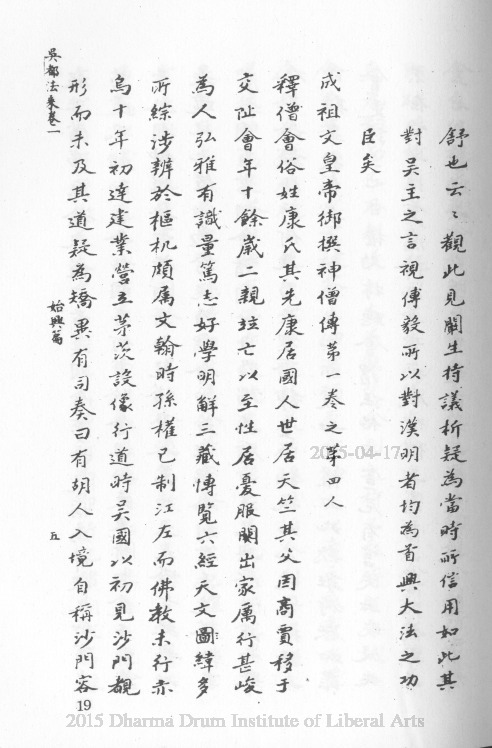 舒也云云觀此見闞生持議析疑為當時所信用如此其
對吳主之言視傅毅所以對漢明者均為首興大法之功
臣矣
成祖文皇帝御撰神僧傳第一卷之第四人
釋僧會俗姓康氏其先康居國人世居天竺其父因商賈移于
交阯會年十餘歲二親竝亡以至性居憂服闋出家厲行甚峻
為人弘雅有識量篤志好學明解三藏博覽六經天文圖緯多
所綜涉辨於樞机頗属文翰時孫權已制江左而佛教未行赤
烏十年初達建業營立茅茨設像行道時吳國以初見沙門覩
形而未及其道疑為矯異有司奏曰有胡人入境自稱沙門容
吳都法乘卷一
始興篇
五
19
2015-04-17
2015 Dharma Drum Institute of Liberal Arts